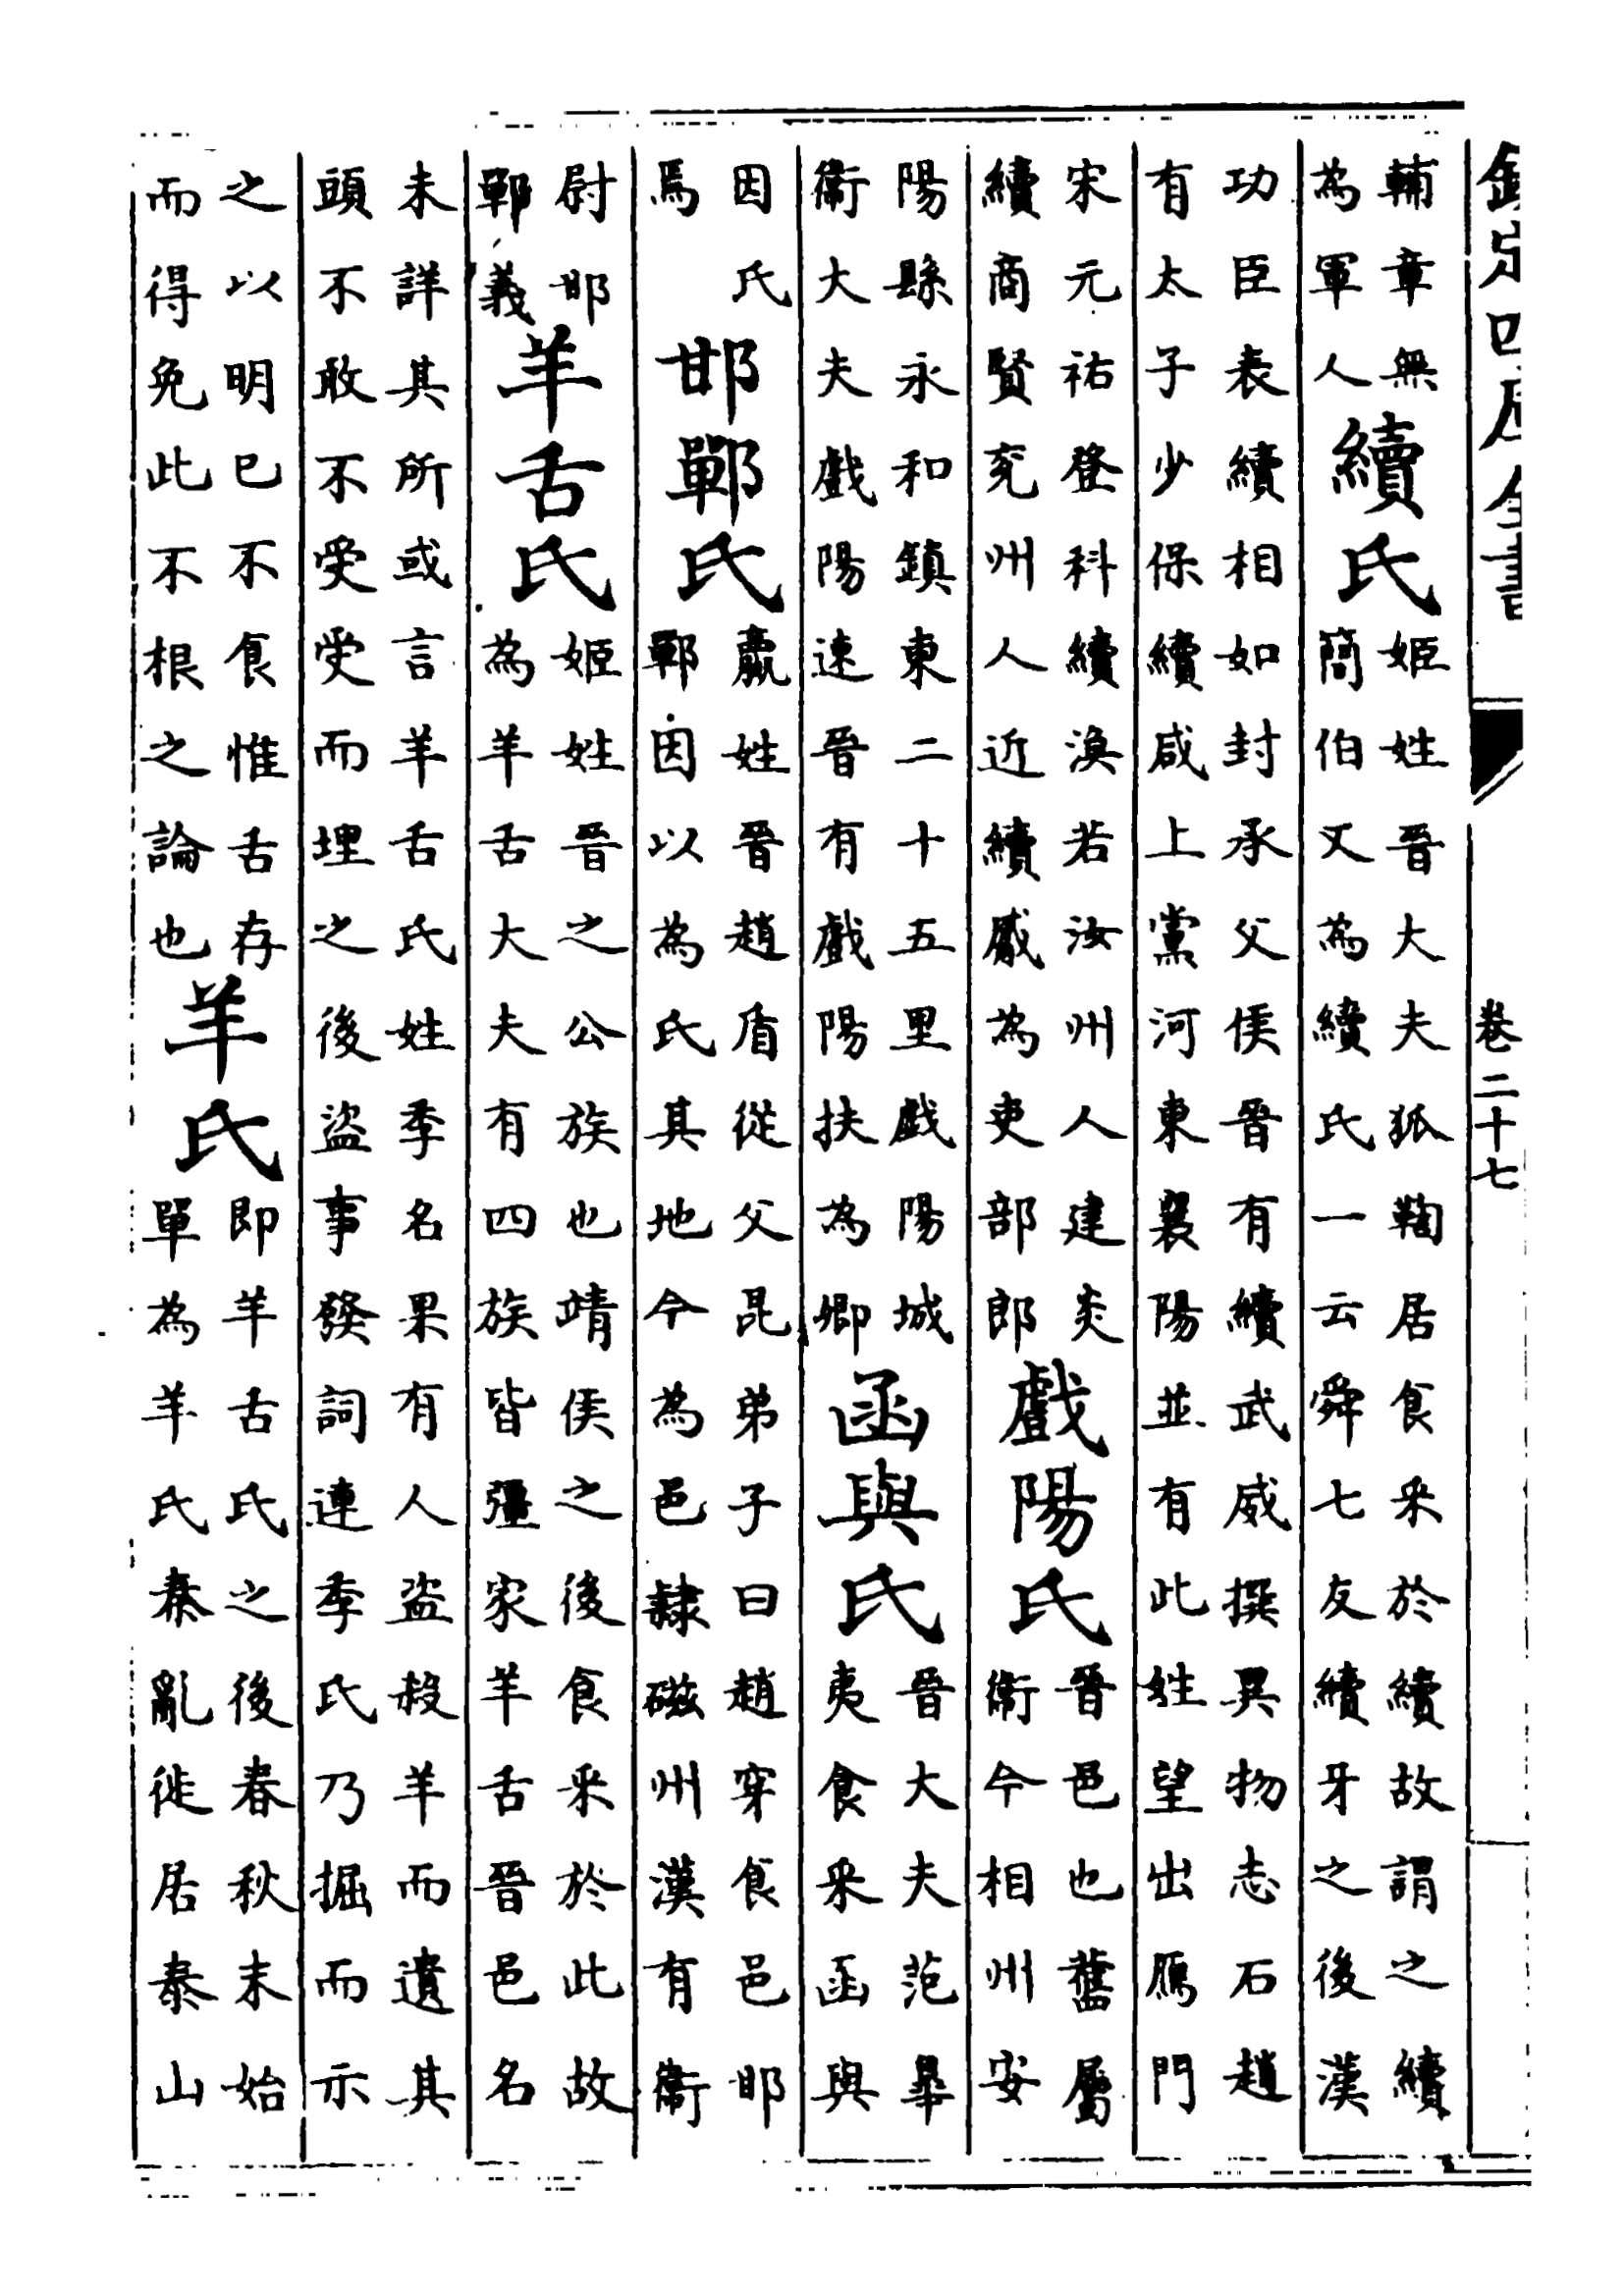 欽定四庫全書
卷二十七
輔章無
為軍人
續氏
姬姓晋大夫狐鞫居食采於續故謂之續
簡伯又為續氏一云舜七友續牙之後漢
功臣表續相如封承父侯晋有續武威撰異物志石趙
有太子少保續咸上黨河東襄陽並有此姓望出鴈門
宋元祐登科續渙若汝州人建炎
續商賢兖州人近續觱為吏部郎
戲陽氏
晉邑也舊屬
衛今相州安
陽縣永和鎮東二十五里戯陽城
衛大夫戲陽速晋有戲陽扶為卿
函與氏
晉大夫范臯
夷食采函與
因氏
焉
邯鄲氏
嬴姓晋趙盾從父昆弟子曰趙穿食邑邯
鄲因以為氏其地今為邑隸磁州漢有衛
尉邯
鄲義
羊舌氏
姬姓晋之公族也靖侯之後食采於此故
為羊舌大夫有四族皆彊家羊舌晉邑名
未詳其所或言羊舌氏姓季名果有人盜殺羊而遺其
頭不敢不受受而埋之後盜事發詞連季氏乃掘而示
之以明已不食惟舌存
而得免此不根之論也
羊氏
即羊舌氏之後春秋末始
單為羊氏秦亂徙居泰山